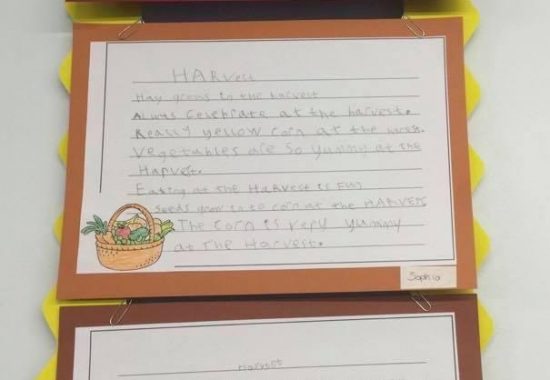 HARvest
Hay grows in the harvest
Alwas celebrate at the harvest.
Really yellow corn at the harvest.
Vegetables are so yummy at the
Harvest.
Eating at the HaRvest is Fun
Seeds grow in to corn at the HARVES
The corn is very yummy
at The Harvest.
Sophia
Harvest